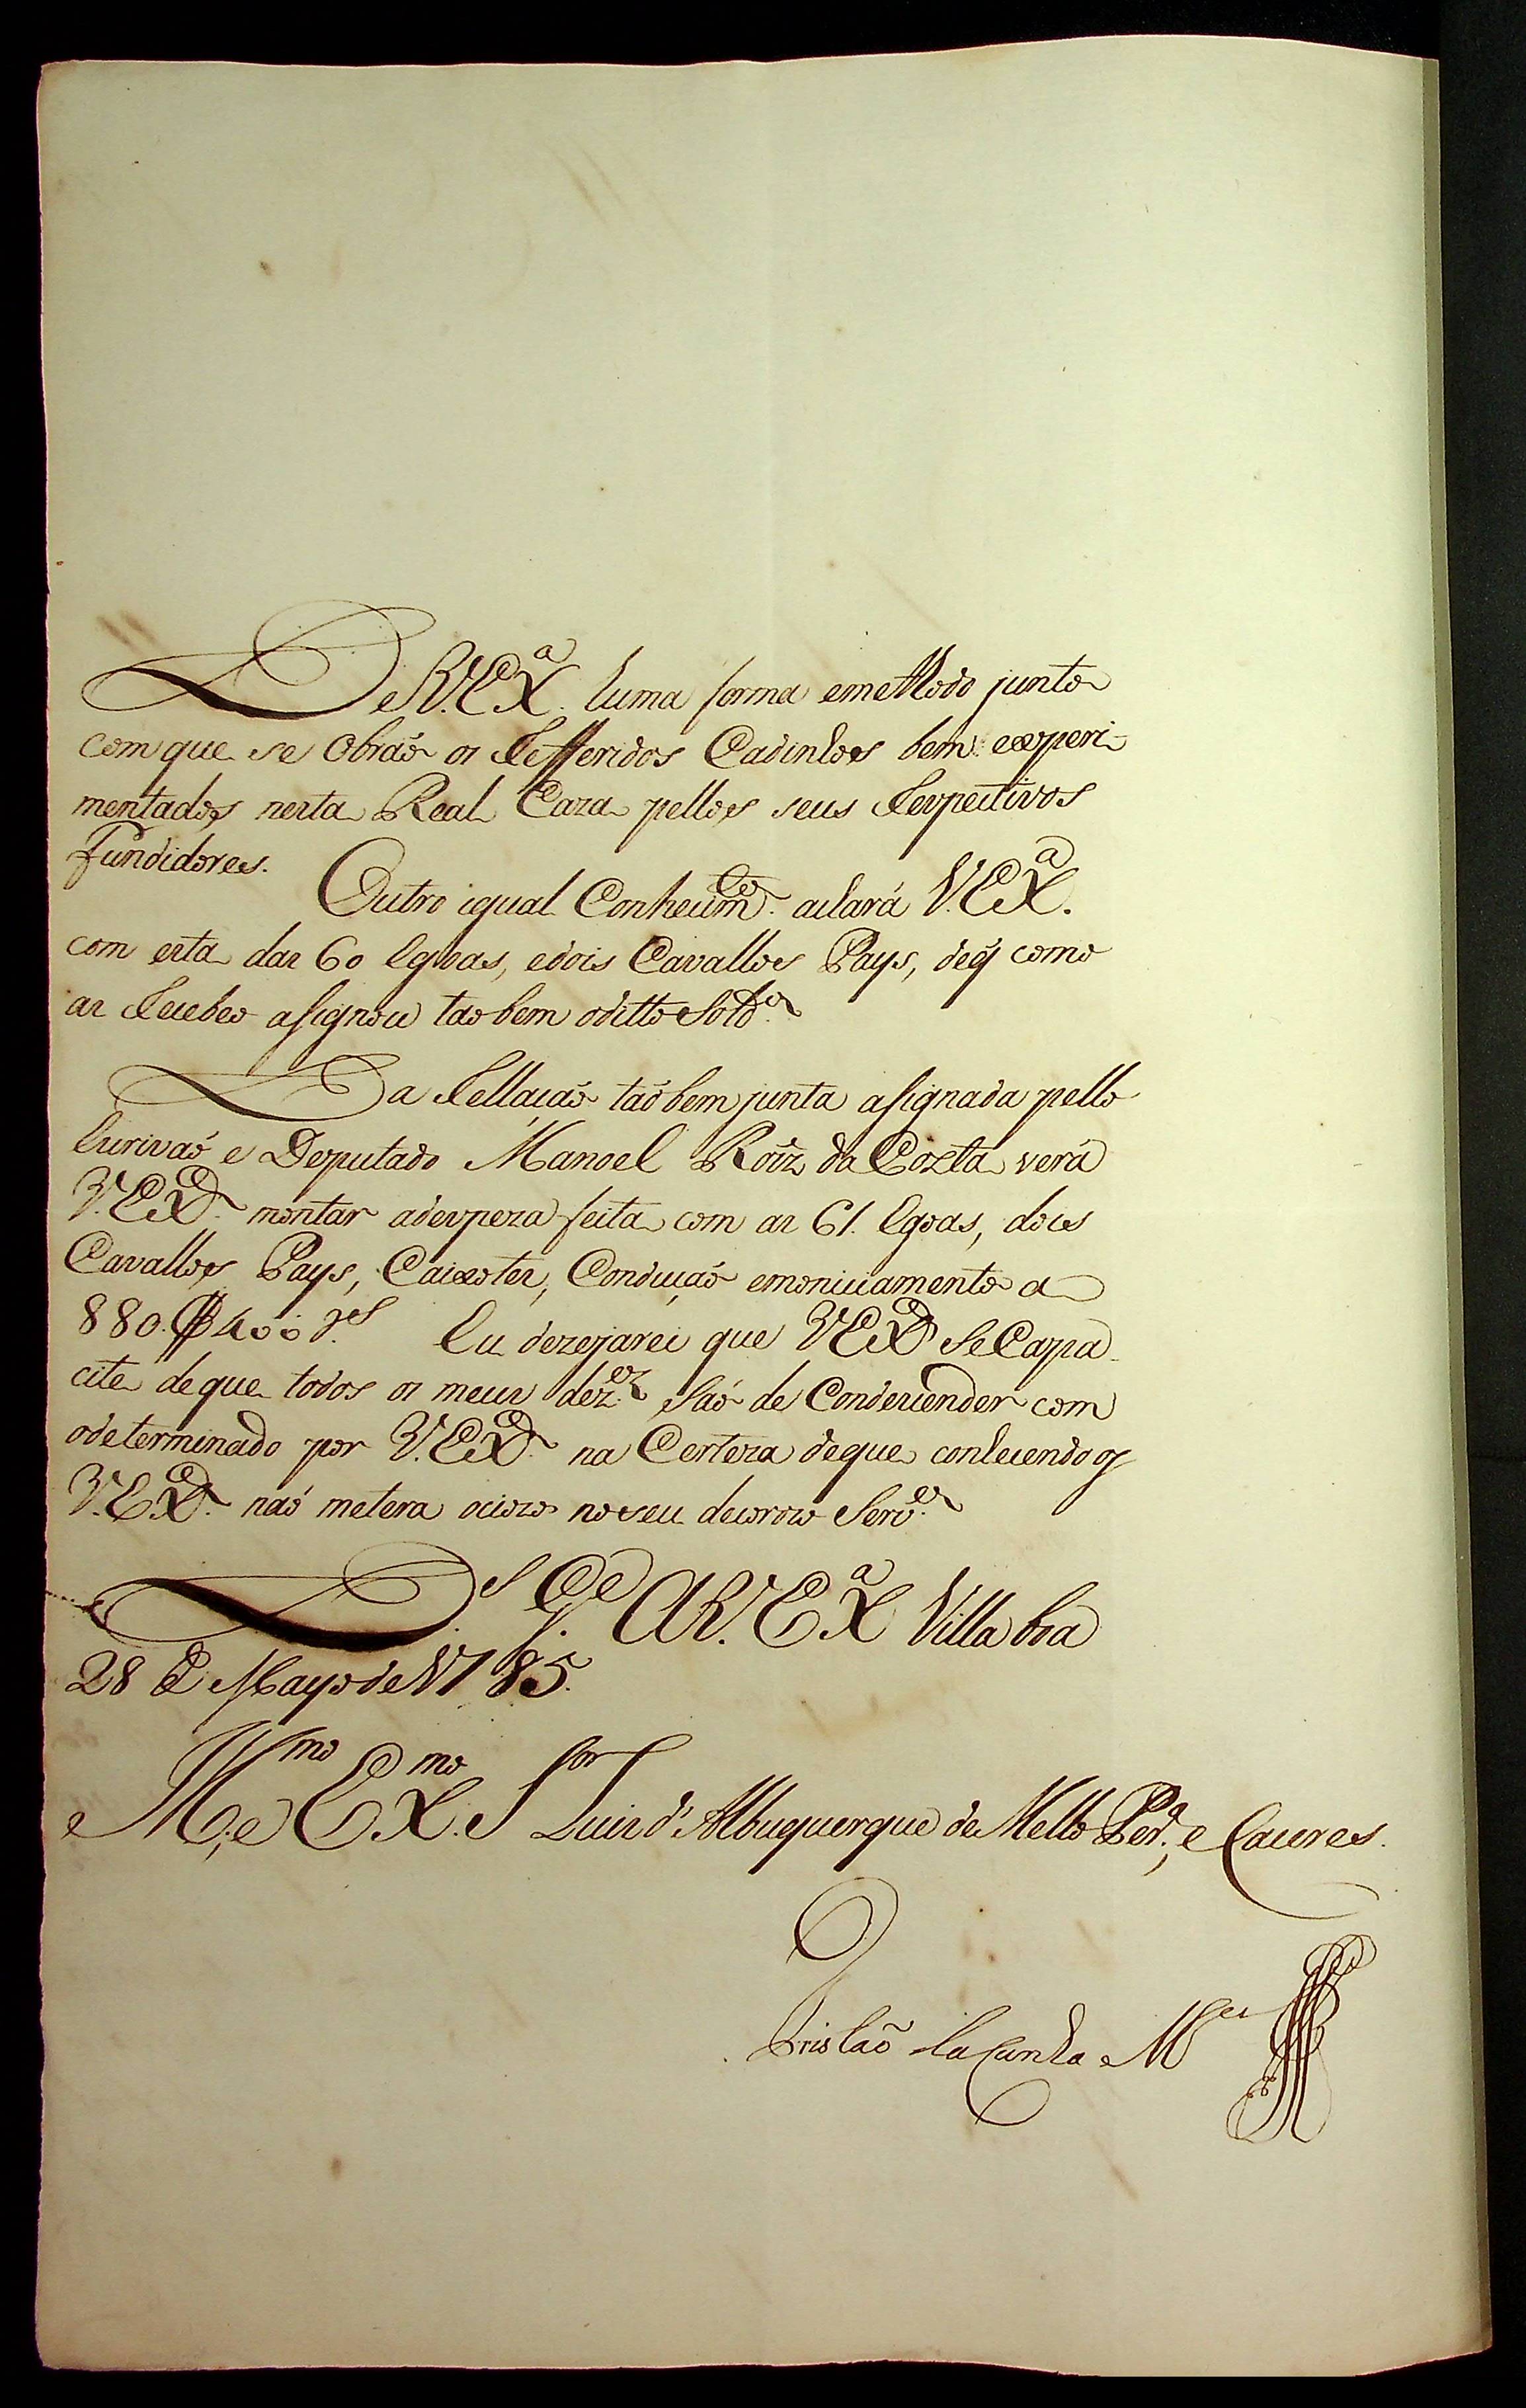 De V. EX.ª huma forma emethodo junto
com que se Obraõ os Refferidos Cadinhos bem experi-
mentados nesta Real Caza pellos seus Respectivos
Fundidores.
Outro igual Conhecim.to achará V. EX.ª
com esta das 60 Egoas, edois Cavallos Pays, deq̃ como
as Recebeo asignou tao bem oditto Sold.o
Da Rellaçaõ taõ bem junta asignada pello
Escrivaõ e Deputado Manoel Roiz da Costa verá
V. EX.ª montar adespeza feita com as 61. Egoas, dois
Cavallos Pays, Caixotes, Conduçaõ emoniciamento a
880.$400 r.es Eu dezejarei que V EX.ª Se Capa-
cite de que todos os meus dez.os Saõ de Condescender com
odeterminado por V. EX.ª na Certeza deque conhecendo q̃
V. EX.ª naõ metera ociozo no seu decorozo Serv.o
D.s G.e A V. EX.ª Villa boa
28 de Mayo de 1785.
Ill.mo e EX.mo S.or Luis d'Albuquerque de Mello Per.ª, e Caceres.
Tristaõ da Cunha M.es